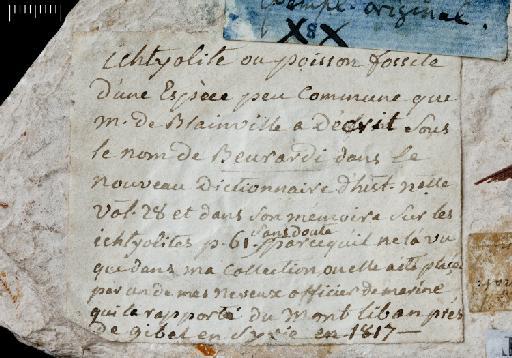 Exempl. original.
X8X
ichtyolite ou poisson fossile
d'une Espèce peu Commune que
m. de Blainville a Décrit sous
le nom de Beurardi dans Le
nouveau Dictionnaire d'hist. nelle
vol. 28 et dans son mémoire sur les
ichtyolites p. 61. sans doute parcequ'il ne la vu
que dans ma collection ou elle a été placé
par un de mes neveux officier de marine
qui la rapporté du mont liban près
de gibel en Syrie en 1817 —